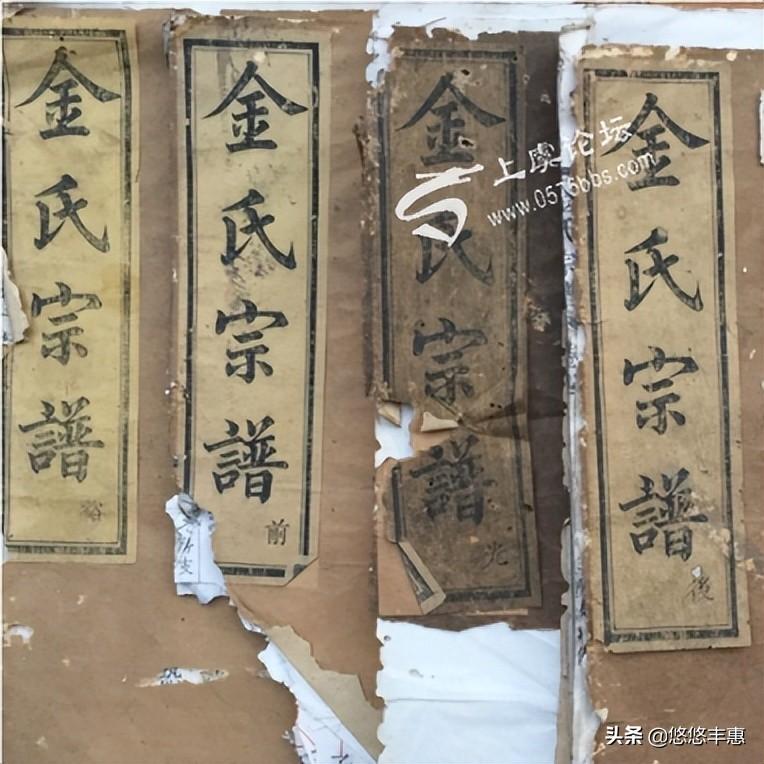 金氏宗譜
裕
金氏宗譜
前
金氏宗譜
光
金氏宗譜
後
上虞论坛
www.0575bbs.com
头条 @悠悠丰惠